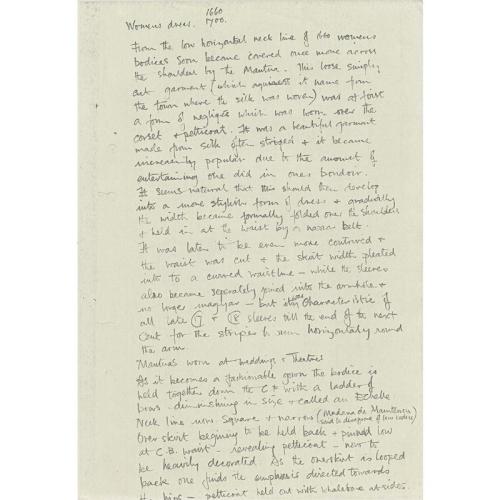 Womens dress. 1660
1700.
From the low horizontal neck line of 1660 womens
bodices soon became covered once more across
the shoulders by the Mantua. This loose simply
cut garment (which aquires it name from
the town where the silk was woven) was at first
a form of negligee which was worn over the
corset & petticoat. It was a beautiful garment
made from silk often striped & it became
increasingly popular due to the amount of
entertaining one did in ones boudoir.
It seems natural that this should then develop
into a more stylish form of dress & gradually
the width became formally folded over the shoulders
& held in at the waist by a narrow belt.
It was later to be even more contrived &
the waist was cut & the skirt width pleated
into to a curved waistline – while the sleeves
also became separately joined into the armhole &
no longer magyar – but its characteristic of
all late 17 & 18 sleeves till the end of the next
Cent for the stripes to run horizontally round
the arm.
Mantua's worn at weddings & Theatres
As it becomes a fashionable gown the bodice is
held together down the C.F with a ladder of
bows – diminishing in size & called an Echelle
Neck line now square & narrow (Madame de Maintenon
said to disapprove of low necks)
Over skirt begining to be held back & pinned low
at C.B. waist – revealing petticoat – now to
be heavily decorated. As the overskirt is looped
back one finds the emphasis directed towards
the hips – petticoat held out with whalebone at sides.